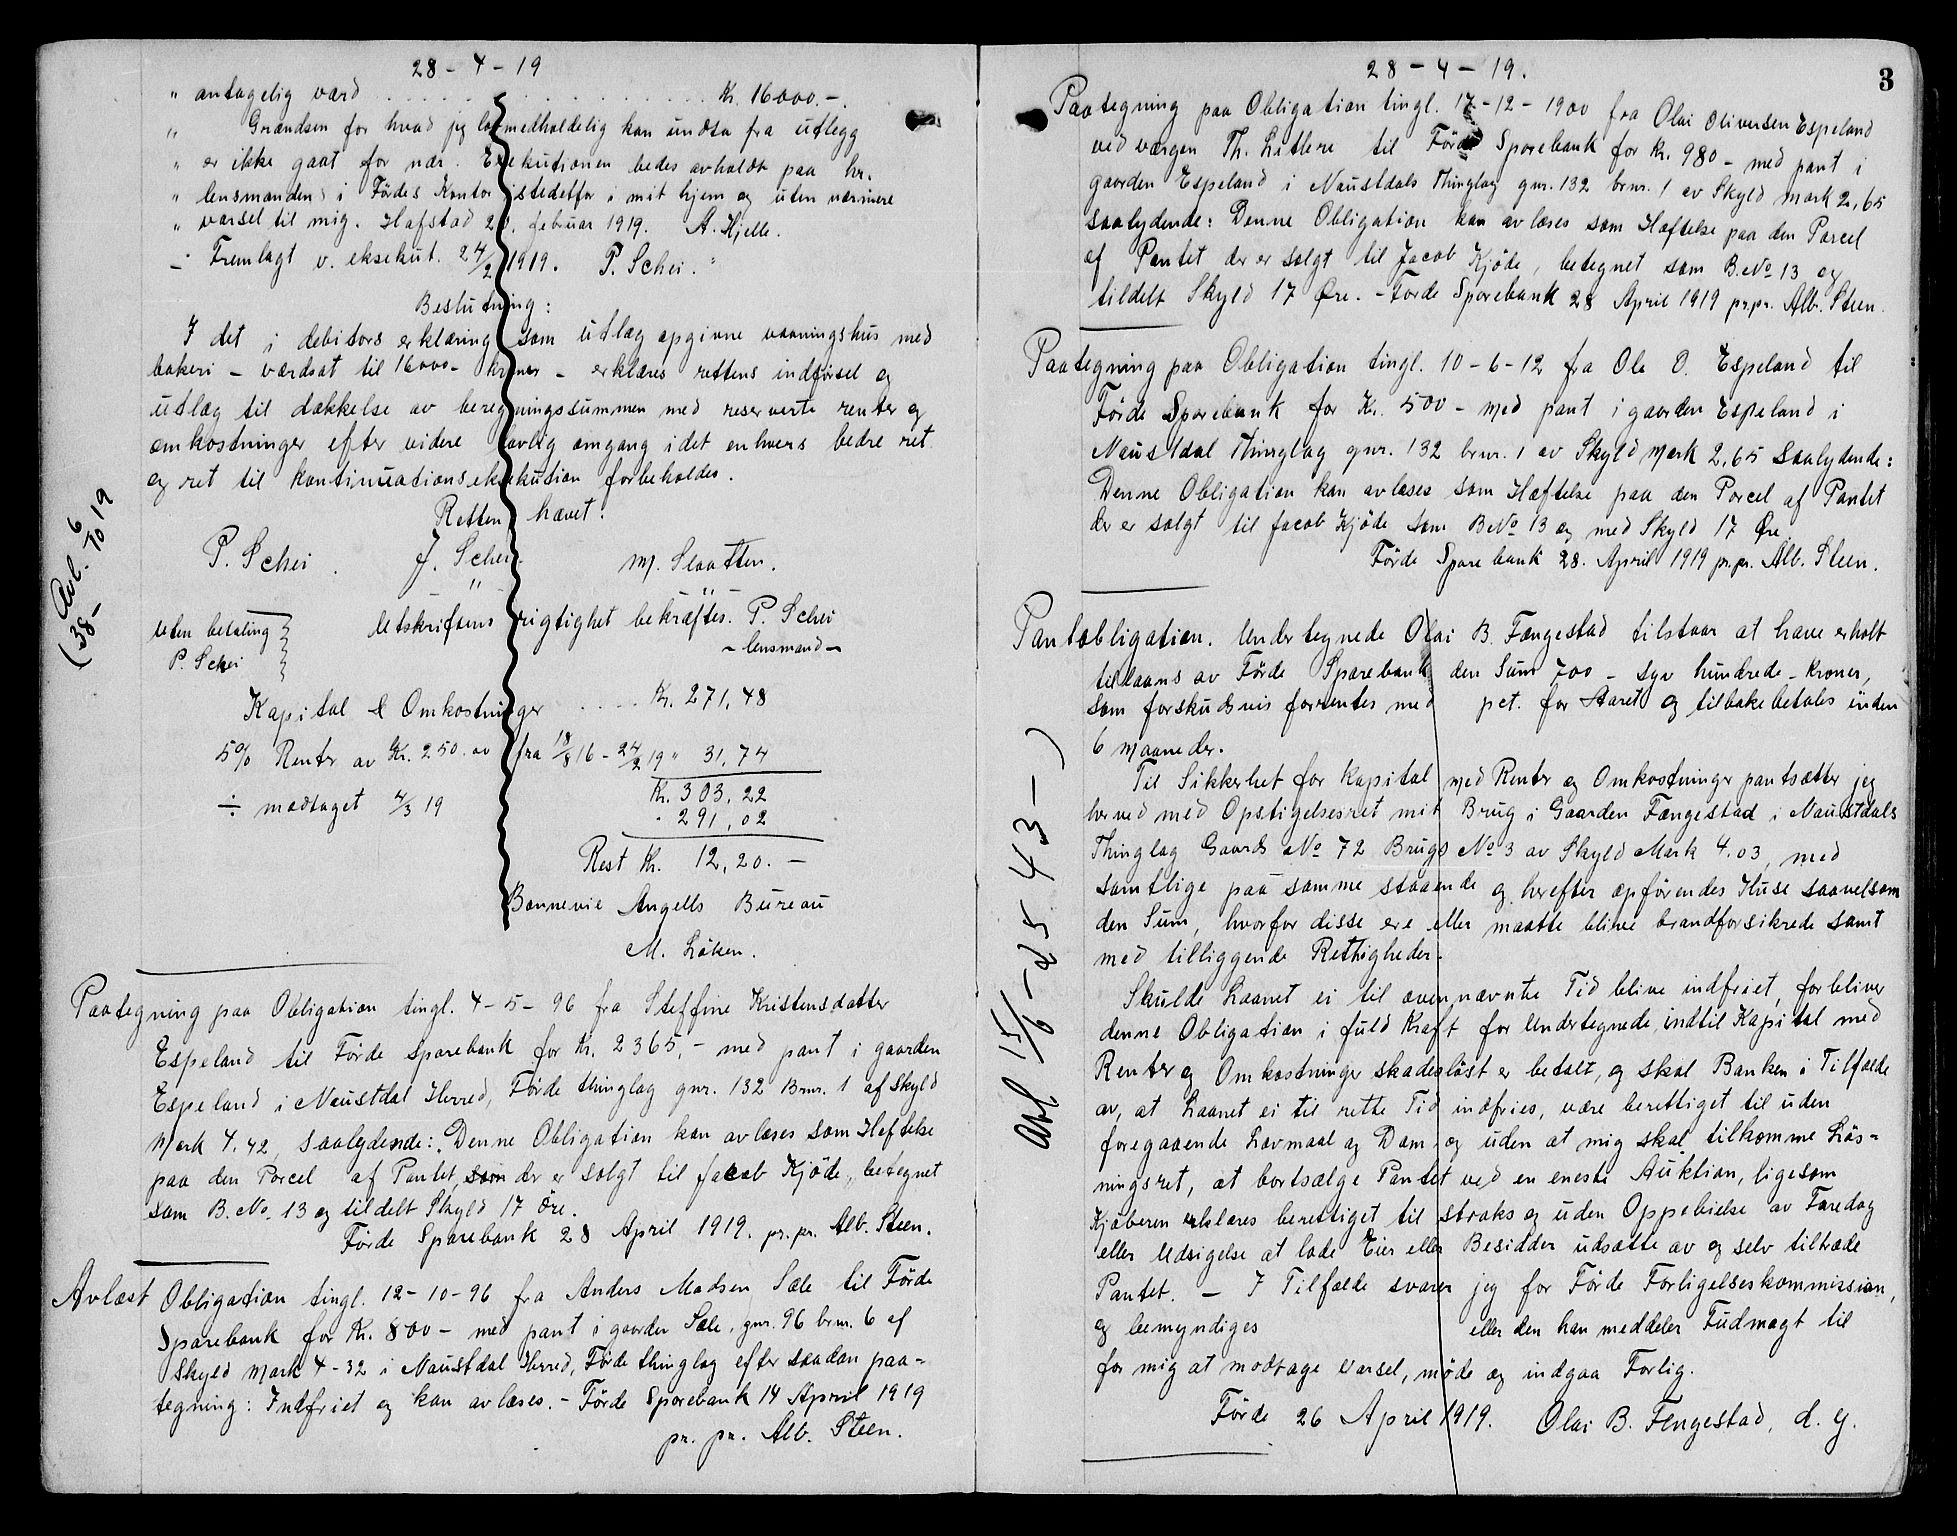 28 - 4 - 19
" antagelig værd . . . . . . . . . . . . . . Kr. 16000.-.
" Grændsen for hvad jeg lovmedholdelig kan undta fra utlegg
" er ikke gaat for nær. Exekutionen bedes avholdt paa hr.
" lensmandens i Førdes Kontor istedetfor i mit hjem og uten nærmere
" varsel til mig. Hafstad februar 1919. A. Hjelle.
- Fremlagt v. eksekut. 24/2 1919. P. Schei. "
Beslutning:
I det i debitors erklæring som utlæg opgivne vaaningshus med
bakeri - værdsat til 16000- kroner - erklæres rettens indførsel og
utlæg til dækkelse av beregningssummen med reserverte renter og
omkostninger efter videre lovlig omgang idet enhvers bedre ret
og ret til kontinuationseksekution forbeholdes.
Retten hævet:
P. Schei. J. Schei. M. Slaatten.
Utskriftens rigtighet bekræftes. P. Schei
- lensmand -
Uten betaling
P. Schei
Kapital & Omkostninger . . . . Kr. 271,48
5% Renter av Kr. 250. av fra 18/8 16 - 24/2 19 " 31,74
Kr. 303,22
÷ modtaget 4/3 19 " 291,02
Rest Kr. 12,20. -
Bonnevie Angells Bureau
M. Løken.
(Avl. 6/10 19
38-
Paategning paa Obligation tingl. 4-5-96 fra Steffine Kristensdatter
Espeland til Førde Sparebank for Kr. 2365,- med pant i gaarden
Espeland i Naustdal Herred, Førde thinglag gnr. 132 Brnr. 1 af Skyld
Mark 4.42, saalydende: Denne Obligation kan avlæses som Heftelse
paa den Parcel af Pantet, som der er solgt til Jacob Kjøde, betegnet
som B. No. 13 og tildelt Skyld 17 Øre.
Førde Sparebank 28 April 1919. pr. pr. Alb. Steen.
Avlæst Obligation tingl. 12-10-96 fra Anders Madsen Sæle til Førde
Sparebank for Kr. 800- med pant i gaarden Sæle, gnr. 96 brnr. 6 af
Skyld Mark 4-32 i Naustdal Herred, Førde thinglag efter saadan paa-
tegning: Indfriet og kan avlæses. - Førde Sparebank 14 April 1919
pr. pr. Alb. Steen.
28 - 4 - 19.
3
Paategning paa Obligation tingl. 17-12-1900 fra Olai Oliversen Espeland
ved værgen Th. Litlere til Førde Sparebank for Kr. 980- med pant i
gaarden Espeland i Naustdals Thinglag gnr. 132 brnr. 1 av Skyld mark 2,65
saalydende: Denne Obligation kan avlæses som Hæftelse paa den Parcel
af Pantet der er solgt til Jacob Kjöde, betegnet som B.No 13 og
tildelt Skyld 17 Øre. - Førde Sparebank 28 April 1919 pr.pr. Alb. Steen.
Paategning paa Obligation tingl. 10-6-12 fra Ole O. Espeland til
Førde Sparebank for Kr. 500- med pant i gaarden Espeland i
Naustdal Thinglag gnr. 132 brnr. 1 av Skyld Mark 2,65 saalydende:
Denne Obligation kan avlæses som Hæftelse paa den Parcel af Pantet
der er solgt til Jacob Kjöde som B.No 13 og med Skyld 17 Øre
Førde Sparebank 28. April 1919 pr.pr. Alb. Steen.
Pantobligation. Undertegnede Olai B. Fængestad tilstaar at have erholt
tillaans av Førde Sparebank den Sum 700 - syv hundrede - kroner,
som forskudsvis forrentes med pct. for Aaret og tilbakebetales inden
6 maaneder.
Til Sikkerhet for Kapital med Renter og Omkostninger pantsætter jeg
herved med Opstigelsesret mit Brug i Gaarden Fængestad i Naustdals
Thinglag Gaards No 72 Brugs No 3 av Skyld Mark 4.03, med
samtlige paa samme staaende og herefter opførendes Huse saavelsom
den Sum, hvorfor disse ere eller maatte blive brandforsikrede samt
med tilliggende Rettigheder.
Skulde Laanet ei til ovennævnte Tid blive indfriet, forbliver
denne Obligation i fuld Kraft for Undertegnede, indtil Kapital med
Renter og Omkostninger skadesløst er betalt, og skal Banken i Tilfælde
av, at Laanet ei til rette Tid indfries, være berettiget til uden
foregaaende Lovmaal og Dom og uden at mig skal tilkomme Løs-
ningsret, at bortsælge Pantet ved en eneste Auktion, ligesom
Kjøberen erklæres berettiget til straks og uden Oppebielse av Faredag
eller Udsigelse at lade Eier eller Besidder udsætte av og selv tiltræde
Pantet. - I Tilfælde svarer jeg for Førde Forligelseskommission,
og bemyndiges eller den han meddeler Fudmagt til
for mig at modtage Varsel, møde og indgaa Forlig.
Førde 26 April 1919. Olai B. Fengestad, d. y.
Avl 15/6 - 25 43 - )